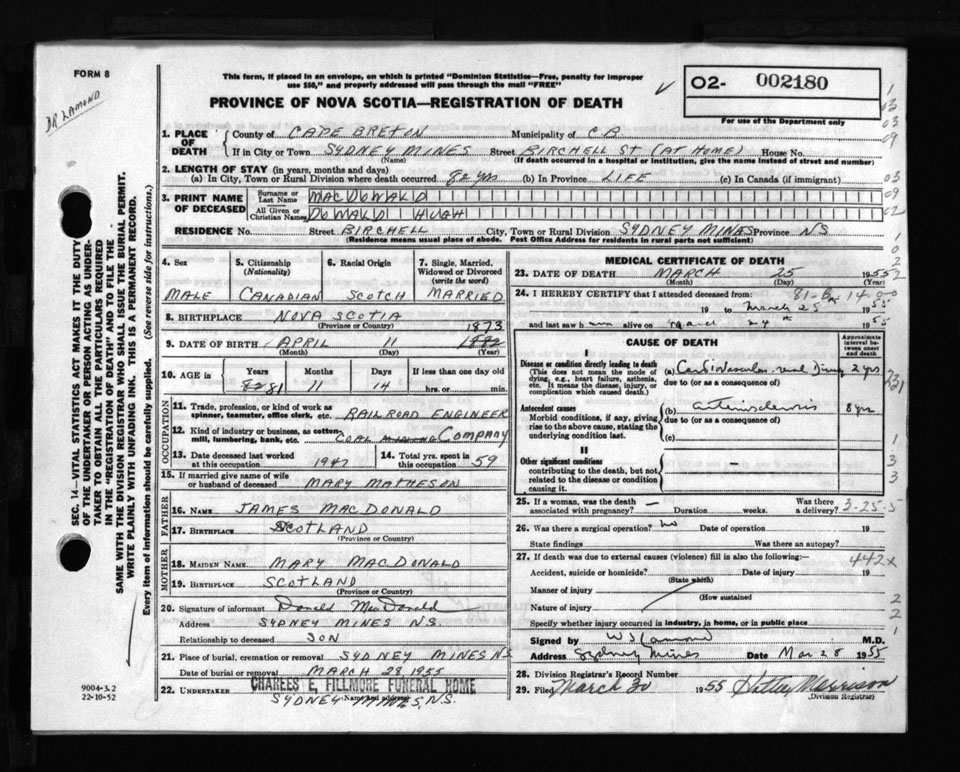 FORM 8
DR LAMOND
This form, if placed in an envelope, on which is printed "Dominion Statistics—Free, penalty for improper
use $50," and properly addressed will pass through the mail "FREE"
PROVINCE OF NOVA SCOTIA—REGISTRATION OF DEATH
O2- 002180
For use of the Department only
SEC. 14—VITAL STATISTICS ACT MAKES IT THE DUTY
OF THE UNDERTAKER OR PERSON ACTING AS UNDER-
TAKER TO OBTAIN ALL THE PARTICULARS REQUIRED
IN THE "REGISTRATION OF DEATH" AND TO FILE THE
SAME WITH THE DIVISION REGISTRAR WHO SHALL ISSUE THE BURIAL PERMIT.
WRITE PLAINLY WITH UNFADING INK. THIS IS A PERMANENT RECORD.
Every item of information should be carefully supplied. (See reverse side for instructions.)
1. PLACE OF DEATH
County of CAPE BRETON Municipality of C B
If in City or Town SYDNEY MINES Street BIRCHELL ST (AT HOME) House No.
(Name) (If death occurred in a hospital or institution, give the name instead of street and number)
2. LENGTH OF STAY (in years, months and days)
(a) In City, Town or Rural Division where death occurred 82 yrs (b) In Province LIFE (c) In Canada (if immigrant)
3. PRINT NAME OF DECEASED
Surname or Last Name MACDONALD
All Given or Christian Names DONALD HUGH
RESIDENCE No. Street BIRCHELL City, Town or Rural Division SYDNEY MINES Province NS
(Residence means usual place of abode. Post Office Address for residents in rural parts not sufficient)
4. Sex 5. Citizenship (Nationality) 6. Racial Origin 7. Single, Married, Widowed or Divorced (write the word)
MALE CANADIAN SCOTCH MARRIED
8. BIRTHPLACE NOVA SCOTIA
(Province or Country)
1873
9. DATE OF BIRTH APRIL 11 1882
(Month) (Day) (Year)
10. AGE in Years Months Days If less than one day old
82 81 11 14 hrs. or min.
OCCUPATION
11. Trade, profession, or kind of work as
spinner, teamster, office clerk, etc. RAILROAD ENGINEER
12. Kind of industry or business, as cotton
mill, lumbering, bank, etc. COAL MINING COMPANY
13. Date deceased last worked
at this occupation 1947
14. Total yrs. spent in
this occupation 59
15. If married give name of wife
or husband of deceased MARY MATHESON
FATHER
16. NAME JAMES MACDONALD
17. BIRTHPLACE SCOTLAND
(Province or Country)
MOTHER
18. MAIDEN NAME MARY MACDONALD
19. BIRTHPLACE SCOTLAND
(Province or Country)
20. Signature of informant Donald MacDonald
Address SYDNEY MINES N.S.
Relationship to deceased SON
21. Place of burial, cremation or removal SYDNEY MINES NS
Date of burial or removal MARCH 28 1955
22. UNDERTAKER CHARLES E. FILLMORE FUNERAL HOME
(Name and address)
SYDNEY MINES N.S.
9004-3.2
22-10-52
MEDICAL CERTIFICATE OF DEATH
23. DATE OF DEATH MARCH 25 1955
(Month) (Day) (Year)
24. I HEREBY CERTIFY that I attended deceased from:
19 to March 25 1955
and last saw him alive on March 24th 1955
CAUSE OF DEATH
Approximate interval between onset and death
I
Disease or condition directly leading to death
(This does not mean the mode of
dying, e.g., heart failure, asthenia,
etc. It means the disease, injury, or
complication which caused death.)
(a) 2 yrs
due to (or as a consequence of)
Antecedent causes
Morbid conditions, if any, giving
rise to the above cause, stating the
underlying condition last.
(b) arteriosclerosis 8 yrs
due to (or as a consequence of)
(c)
II
Other significant conditions
contributing to the death, but not
related to the disease or condition
causing it.
25. If a woman, was the death
associated with pregnancy? — Duration weeks. Was there
a delivery? 3-25-5
26. Was there a surgical operation? no Date of operation 19
State findings Was there an autopsy?
27. If death was due to external causes (violence) fill in also the following:— 442x
Accident, suicide or homicide? Date of injury 19
(State which)
Manner of injury
(How sustained
Nature of injury
Specify whether injury occurred in industry, in home, or in public place
Signed by W S Lamond M.D.
Address Sydney Mines Date Mar 28 1955
28. Division Registrar's Record Number
29. Filed March 30 1955
(Division Registrar)